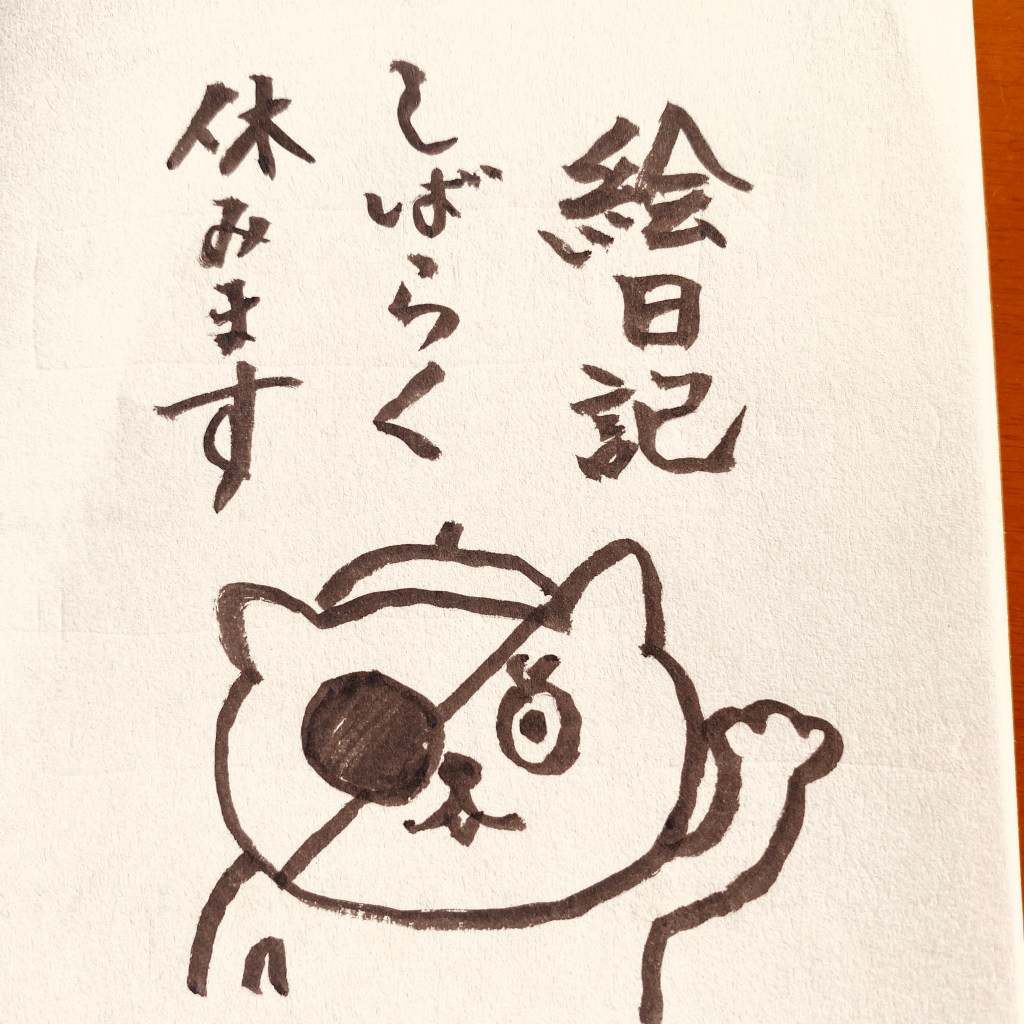 絵日記
しばらく
休みます